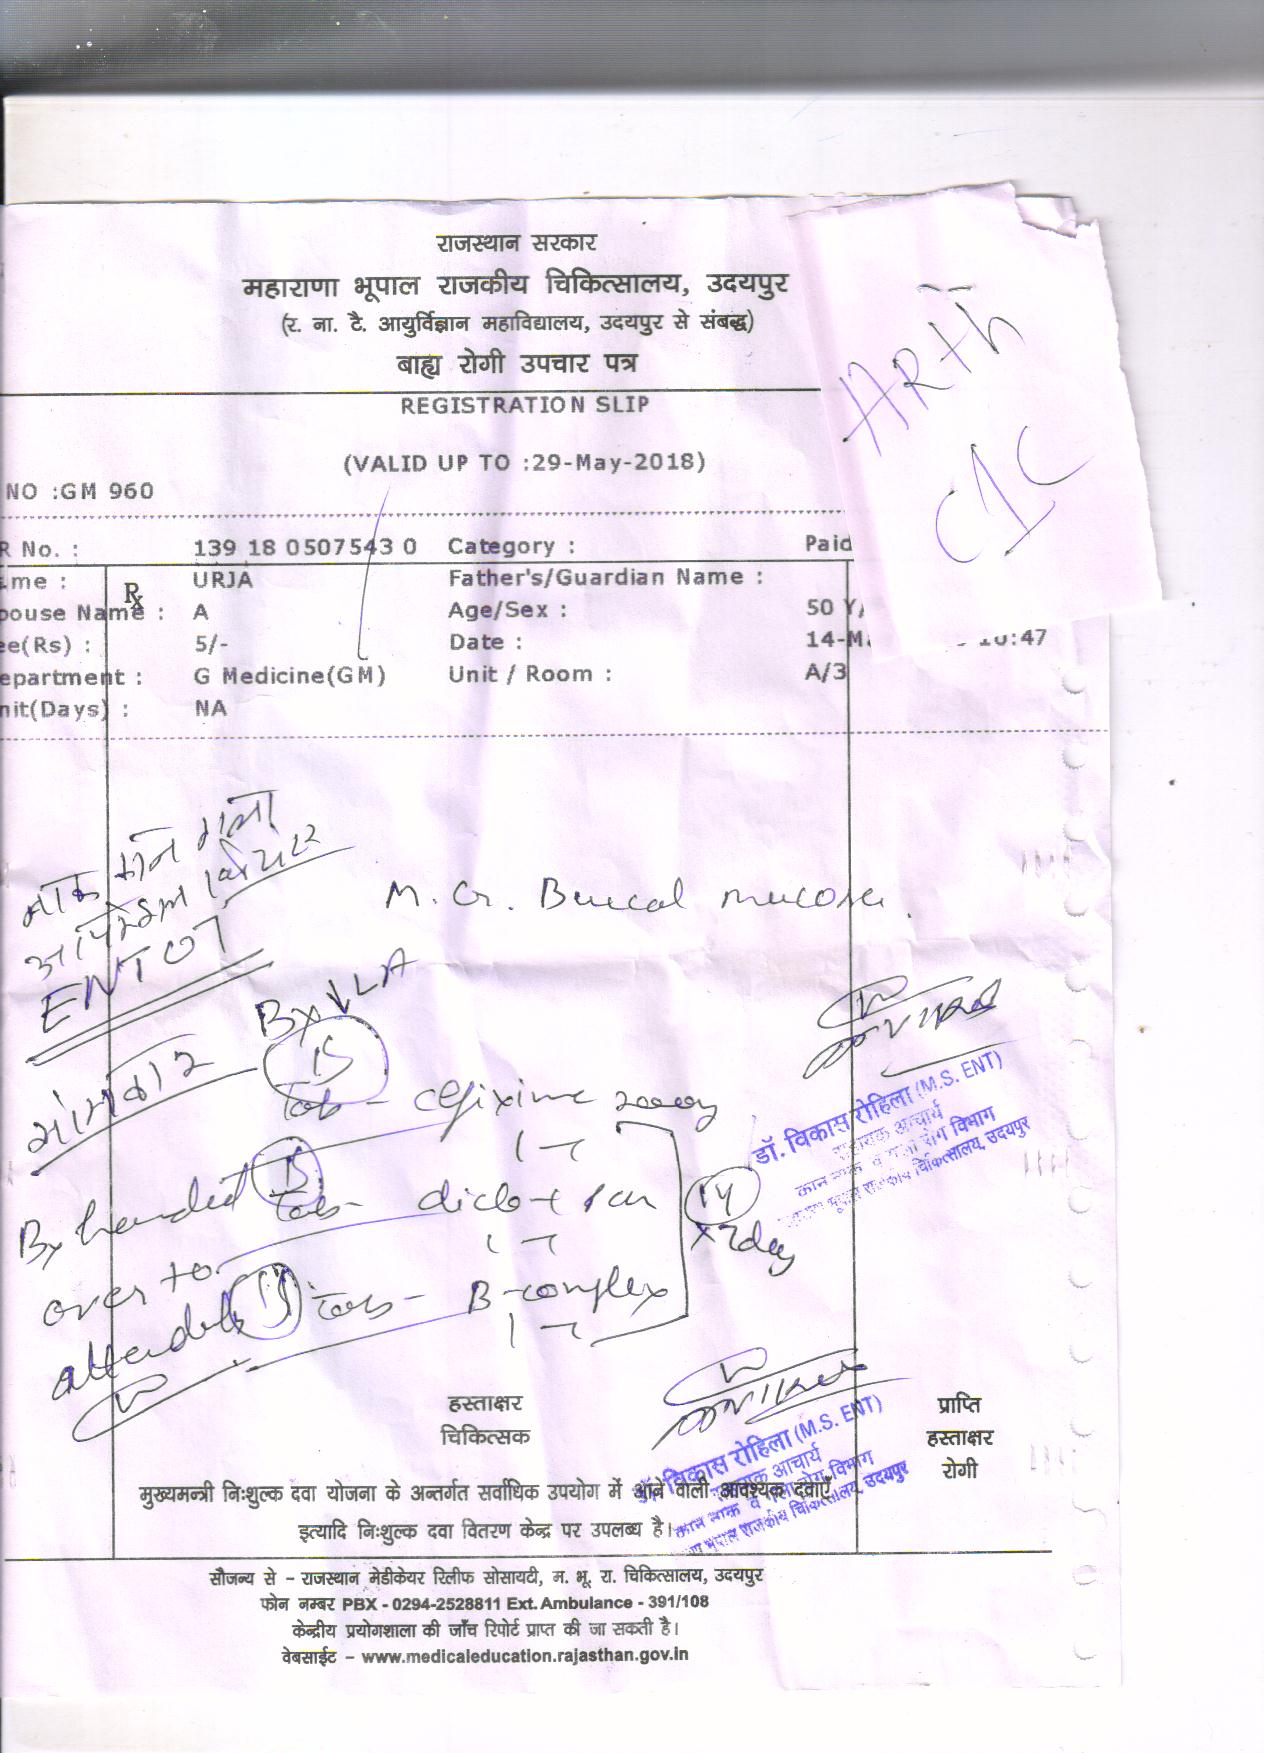 राजस्थान सरकार
महाराणा भूपाल राजकीय चिकित्सालय, उदयपुर
(र. ना. टै. आयुर्विज्ञान महाविद्यालय, उदयपुर से संबद्ध)
बाह्य रोगी उपचार पत्र
REGISTRATION SLIP
(VALID UP TO :29-May-2018)
NO :GM 960
ARTH
CIC
R No. : 139 18 0507543 0 Category : Paid
me : URJA Father's/Guardian Name :
pouse Name : A Age/Sex : 50 Y
ee(Rs) : 5/- Date : 14-M 10:47
epartment : G Medicine(GM) Unit / Room : A/3
nit(Days) : NA
Rx
नाक कान गला
ऑपरेशन थियेटर
ENT OT
M. Gr. Buccal mucosa.
Bx ↓ LA
मंगलवार
15
Tab - cefixime 200mg
1 -
15
Tab - diclo +
1 -
15
Tab - B-complex
1 -
14
x 7day
Bx handed
over to
डॉ. विकास रोहिला (M.S. ENT)
सहायक आचार्य
कान नाक व गला रोग विभाग
भूपाल राजकीय चिकित्सालय, उदयपुर
हस्ताक्षर
चिकित्सक
विकास रोहिला (M.S. ENT)
सहायक आचार्य
कान नाक व गला रोग विभाग
भूपाल राजकीय चिकित्सालय, उदयपुर
प्राप्ति
हस्ताक्षर
रोगी
मुख्यमन्त्री निःशुल्क दवा योजना के अन्तर्गत सर्वाधिक उपयोग में आने वाली आवश्यक दवाएँ
इत्यादि निःशुल्क दवा वितरण केन्द्र पर उपलब्ध है।
सौजन्य से – राजस्थान मेडीकेयर रिलीफ सोसायटी, म. भू. रा. चिकित्सालय, उदयपुर
फोन नम्बर PBX - 0294-2528811 Ext. Ambulance - 391/108
केन्द्रीय प्रयोगशाला की जाँच रिपोर्ट प्राप्त की जा सकती है।
वेबसाईट – www.medicaleducation.rajasthan.gov.in